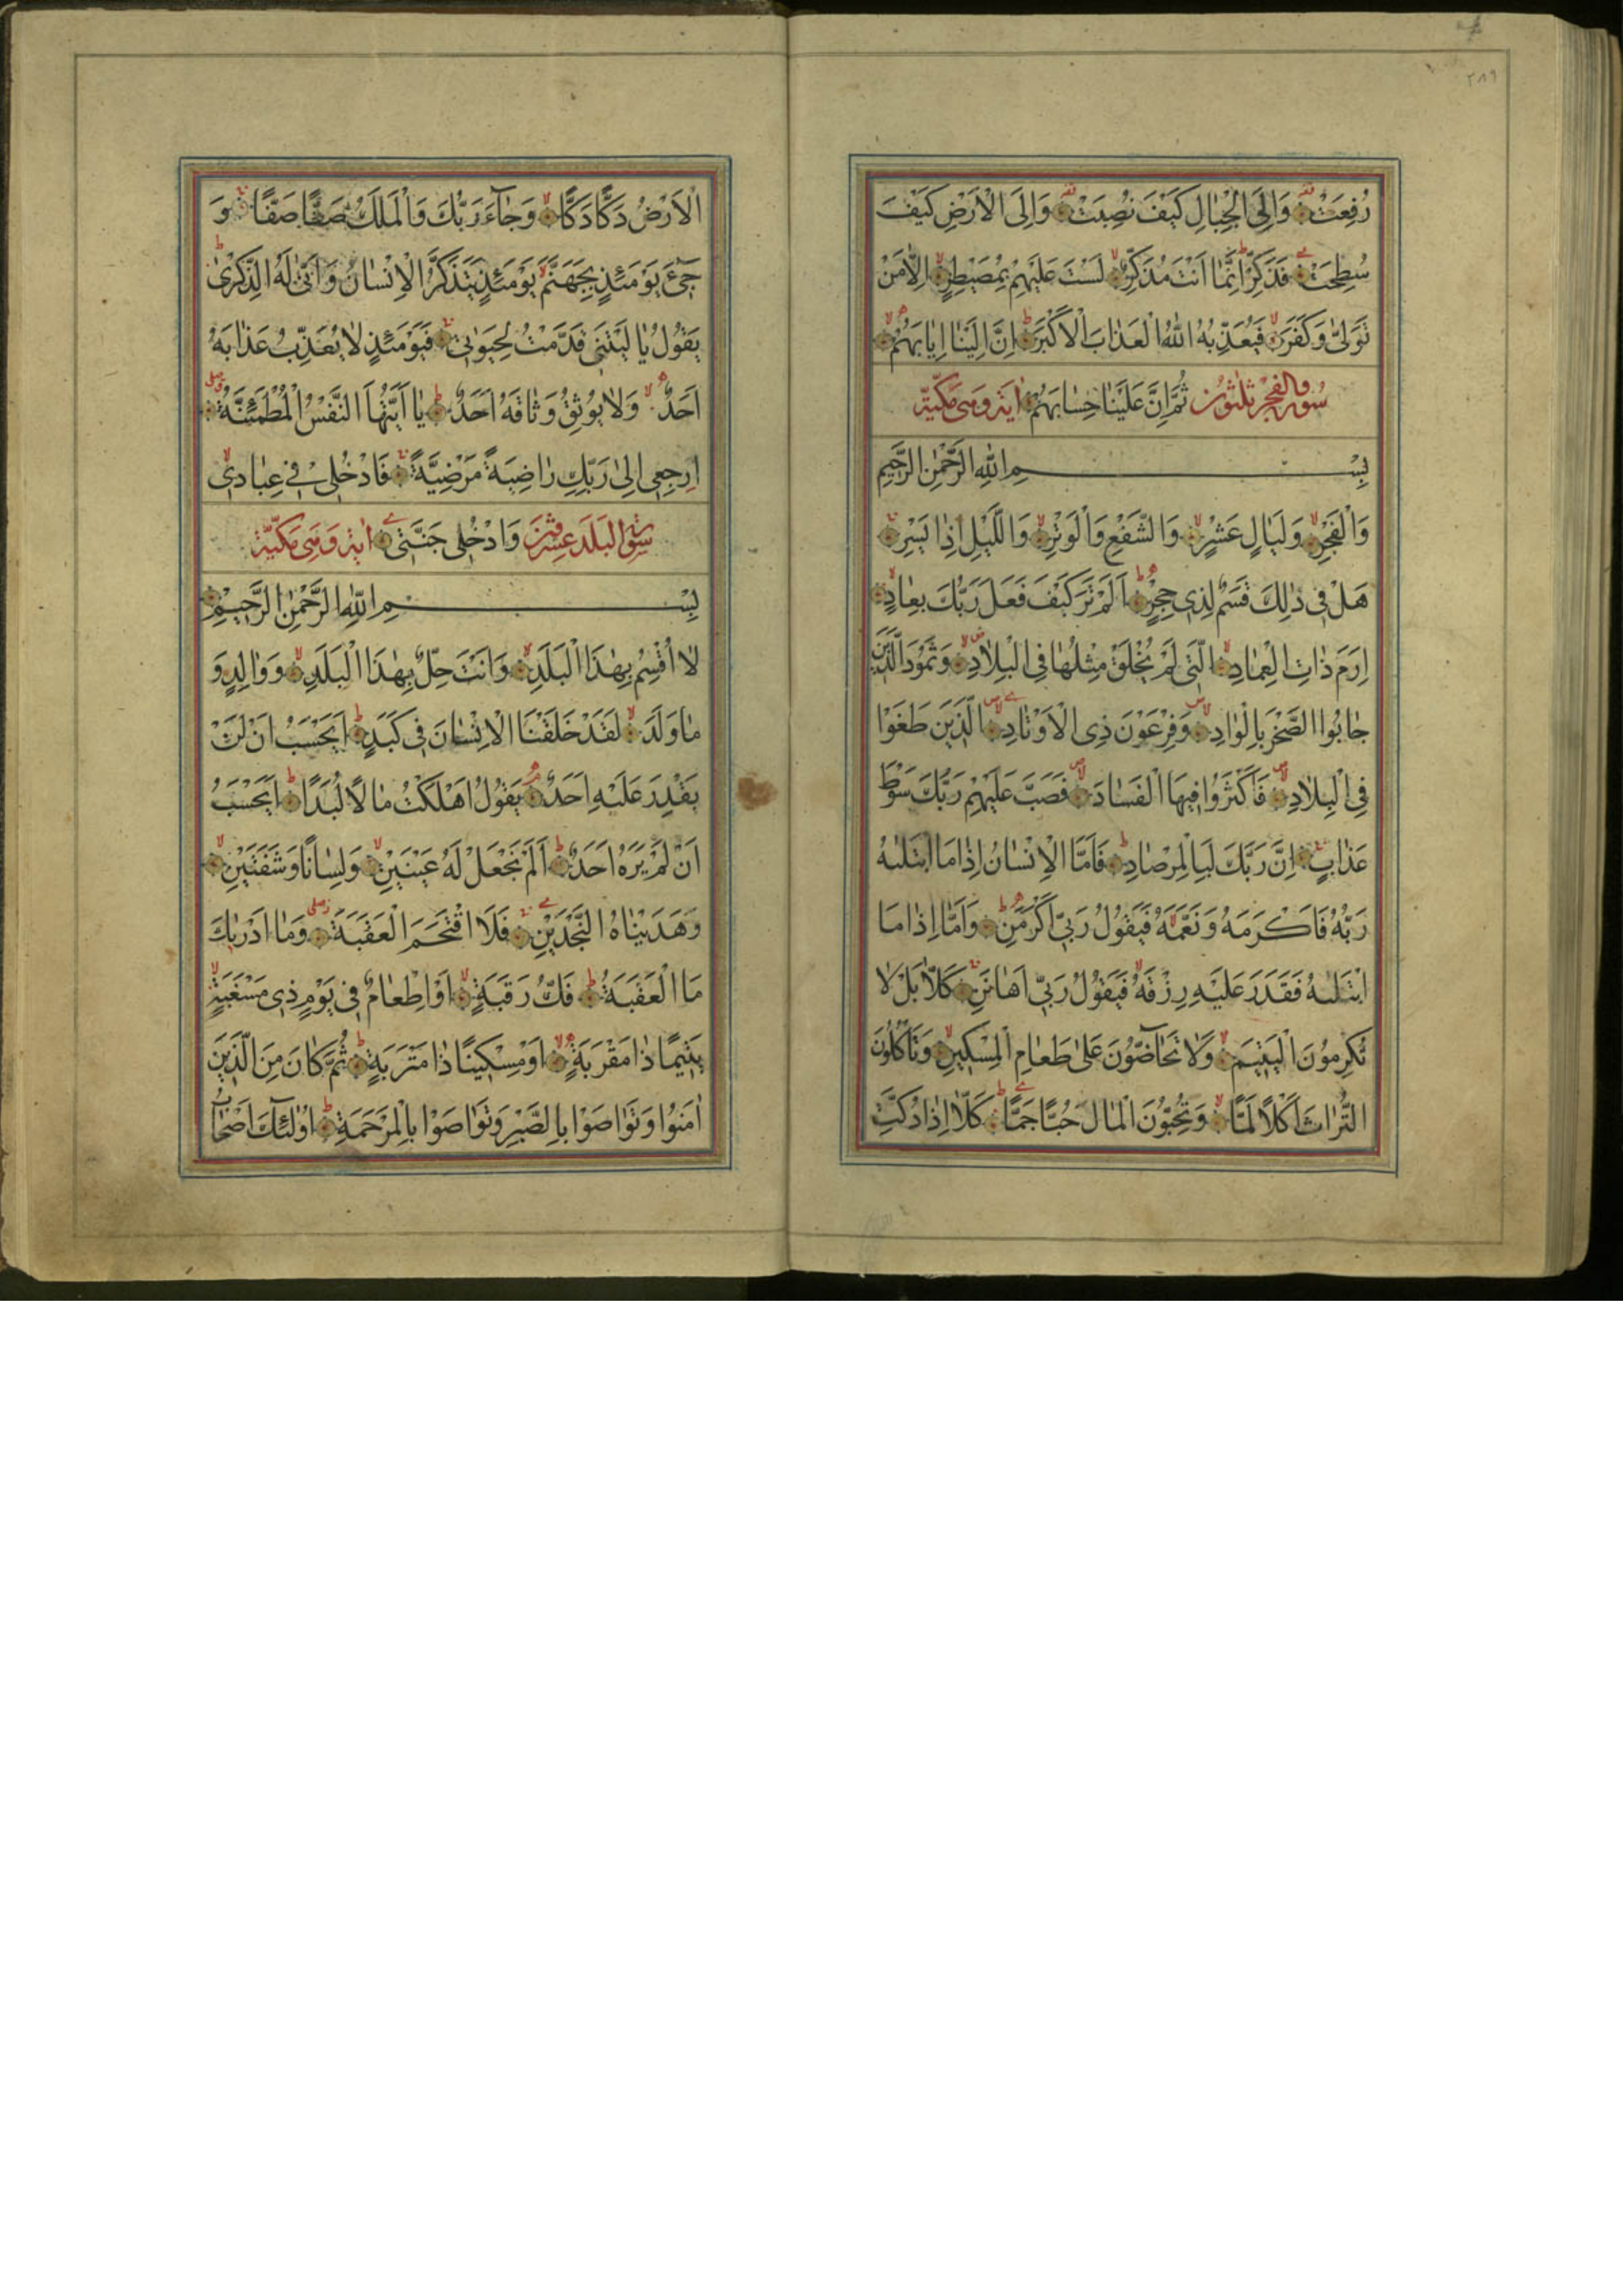 ٢٨٩
رُفِعَتْ وَاِلَى الْجِبَالِ كَيْفَ نُصِبَتْ وَاِلَى الْاَرْضِ كَيْفَ
سُطِحَتْ فَذَكِّرْ اِنَّمَا اَنْتَ مُذَكِّرٌ لَسْتَ عَلَيْهِمْ بِمُصَيْطِرٍ اِلَّا مَنْ
تَوَلّٰى وَكَفَرَ فَيُعَذِّبُهُ اللّٰهُ الْعَذَابَ الْاَكْبَرَ اِنَّ اِلَيْنَا اِيَابَهُمْ
سورة والفجر ثلثون ثُمَّ اِنَّ عَلَيْنَا حِسَابَهُمْ اية وهى مكيّة
بِسْمِ اللّٰهِ الرَّحْمٰنِ الرَّحِيمِ
وَالْفَجْرِ وَلَيَالٍ عَشْرٍ وَالشَّفْعِ وَالْوَتْرِ وَالَّيْلِ اِذَا يَسْرِ
هَلْ فِى ذٰلِكَ قَسَمٌ لِذِى حِجْرٍ اَلَمْ تَرَ كَيْفَ فَعَلَ رَبُّكَ بِعَادٍ
اِرَمَ ذَاتِ الْعِمَادِ الَّتِى لَمْ يُخْلَقْ مِثْلُهَا فِى الْبِلَادِ وَثَمُودَ الَّذِينَ
جَابُوا الصَّخْرَ بِالْوَادِ وَفِرْعَوْنَ ذِى الْاَوْتَادِ الَّذِينَ طَغَوْا
فِى الْبِلَادِ فَاَكْثَرُوا فِيهَا الْفَسَادَ فَصَبَّ عَلَيْهِمْ رَبُّكَ سَوْطَ
عَذَابٍ اِنَّ رَبَّكَ لَبِالْمِرْصَادِ فَاَمَّا الْاِنْسَانُ اِذَا مَا ابْتَلٰيهُ
رَبُّهُ فَاَكْرَمَهُ وَنَعَّمَهُ فَيَقُولُ رَبِّى اَكْرَمَنِ وَاَمَّا اِذَا مَا
ابْتَلٰيهُ فَقَدَرَ عَلَيْهِ رِزْقَهُ فَيَقُولُ رَبِّى اَهَانَنِ كَلَّا بَلْ لَا
تُكْرِمُونَ الْيَتِيمَ وَلَا تَحَاضُّونَ عَلٰى طَعَامِ الْمِسْكِينِ وَتَأْكُلُونَ
التُّرَاثَ اَكْلًا لَمًّا وَتُحِبُّونَ الْمَالَ حُبًّا جَمًّا كَلَّا اِذَا دُكَّتِ
الْاَرْضُ دَكًّا دَكًّا وَجَاءَ رَبُّكَ وَالْمَلَكُ صَفًّا صَفًّا وَ
جِىءَ يَوْمَئِذٍ بِجَهَنَّمَ يَوْمَئِذٍ يَتَذَكَّرُ الْاِنْسَانُ وَاَنّٰى لَهُ الذِّكْرٰى
يَقُولُ يَا لَيْتَنِى قَدَّمْتُ لِحَيٰوتِى فَيَوْمَئِذٍ لَا يُعَذِّبُ عَذَابَهُ
اَحَدٌ وَلَا يُوثِقُ وَثَاقَهُ اَحَدٌ يَا اَيَّتُهَا النَّفْسُ الْمُطْمَئِنَّةُ
اِرْجِعِى اِلٰى رَبِّكِ رَاضِيَةً مَرْضِيَّةً فَادْخُلِى فِى عِبَادِى
سورة البلد عشرون وَادْخُلِى جَنَّتِى اية وهى مكيّة
بِسْمِ اللّٰهِ الرَّحْمٰنِ الرَّحِيمِ
لَا اُقْسِمُ بِهٰذَا الْبَلَدِ وَاَنْتَ حِلٌّ بِهٰذَا الْبَلَدِ وَوَالِدٍ وَ
مَا وَلَدَ لَقَدْ خَلَقْنَا الْاِنْسَانَ فِى كَبَدٍ اَيَحْسَبُ اَنْ لَنْ
يَقْدِرَ عَلَيْهِ اَحَدٌ يَقُولُ اَهْلَكْتُ مَالًا لُبَدًا اَيَحْسَبُ
اَنْ لَمْ يَرَهُ اَحَدٌ اَلَمْ نَجْعَلْ لَهُ عَيْنَيْنِ وَلِسَانًا وَشَفَتَيْنِ
وَهَدَيْنَاهُ النَّجْدَيْنِ فَلَا اقْتَحَمَ الْعَقَبَةَ وَمَا اَدْرٰيكَ
مَا الْعَقَبَةُ فَكُّ رَقَبَةٍ اَوْ اِطْعَامٌ فِى يَوْمٍ ذِى مَسْغَبَةٍ
يَتِيمًا ذَا مَقْرَبَةٍ اَوْ مِسْكِينًا ذَا مَتْرَبَةٍ ثُمَّ كَانَ مِنَ الَّذِينَ
اٰمَنُوا وَتَوَاصَوْا بِالصَّبْرِ وَتَوَاصَوْا بِالْمَرْحَمَةِ اُولٰئِكَ اَصْحَابُ